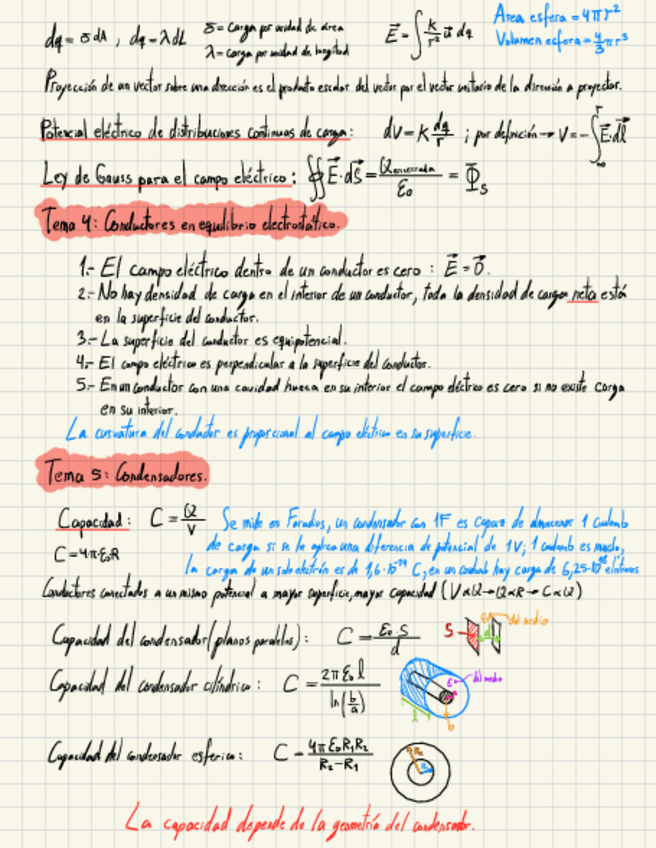 dq = σ dA , dq = λ dL
σ = Carga por unidad de área
λ = carga por unidad de longitud
E⃗ = ∫ K/r² u⃗ dq
Area esfera = 4πr²
Volumen esfera = 4/3 πr³
Proyección de un vector sobre una dirección es el producto escalar del vector por el vector unitario de la dirección a proyectar.
Potencial eléctrico de distribuciones continuas de carga: dV = K dq/r ; por definición → V = -∫_∞^r E⃗·dl⃗
Ley de Gauss para el campo eléctrico: ∯ E⃗·ds⃗ = Q encerrada/ε₀ = Φ_S
Tema 4: Conductores en equilibrio electrostático.
1.- El campo eléctrico dentro de un conductor es cero : E⃗ = 0⃗.
2.- No hay densidad de carga en el interior de un conductor, toda la densidad de carga neta está
en la superficie del conductor.
3.- La superficie del conductor es equipotencial.
4.- El campo eléctrico es perpendicular a la superficie del conductor.
5.- En un conductor con una cavidad hueca en su interior el campo eléctrico es cero si no existe carga
en su interior.
La curvatura del conductor es proporcional al campo eléctrico en su superficie.
Tema 5: Condensadores.
Capacidad: C = Q/V
Se mide en Faradios, un condensador con 1F es capaz de almacenar 1 culomb
de carga si se le aplica una diferencia de potencial de 1V; 1 culomb es mucho,
la carga de un solo electrón es de 1,6·10⁻¹⁹ C, en un culomb hay carga de 6,25·10¹⁸ eléctrones
C = 4πε₀R
Conductores conectados a un mismo potencial a mayor superficie, mayor capacidad (V∝Q→Q∝R→C∝Q)
Capacidad del condensador (planos paralelos): C = ε₀ S/d
S
d
ε → del medio
Capacidad del condensador cilíndrico: C = 2πε₀ l/ln(b/a)
ε → del medio
a
b
l
Capacidad del condensador esferico: C = 4πε₀R₁R₂/R₂-R₁
R₂
R₁
La capacidad depende de la geometría del condensador.